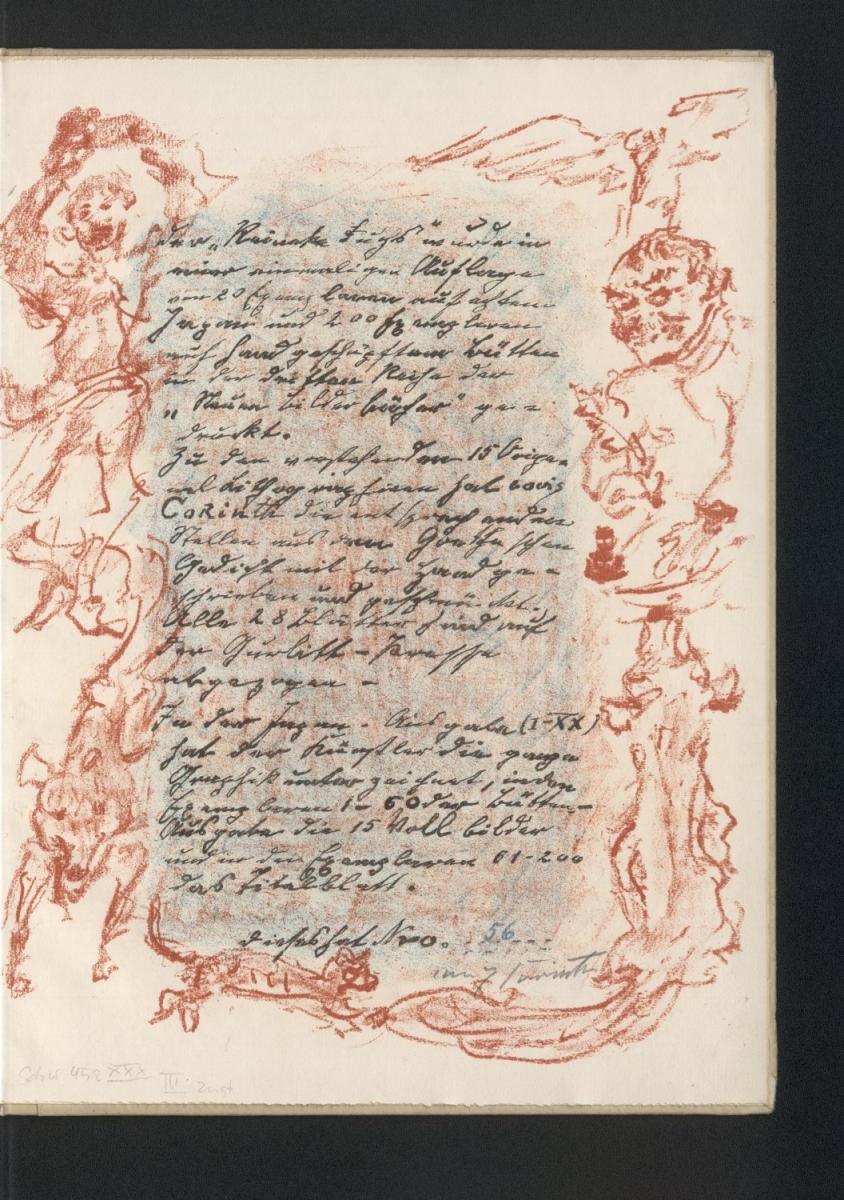 Der „Reineke Fuchs" wurde in
einer einmaligen Auflage
von 20 Exemplaren auf echtem
Japan und 200 Exemplaren
auf handgeschöpftem Bütten
in der dritten Reihe der
„Neuen Bilderbücher" ge-
druckt.
Zu den vorstehenden 15 Origi-
nal Lithographieen hat Lovis
Corinth die entsprechenden
Stellen aus dem Goethe'schen
Gedicht mit der Hand ge-
schrieben und geschmückt.
Alle 28 Blätter sind auf
der Gurlitt-Presse
abgezogen -
In der Japan-Ausgabe (I-XX)
hat der Künstler die ganze
Graphik unterzeichnet, in den
Exemplaren 1-60 der Bütten-
Ausgabe die 15 Vollbilder
und in den Exemplaren 61-200
das Titelblatt.
Dieses hat Nro. 56
Corinth
Schw 452 XXX
III. Zust